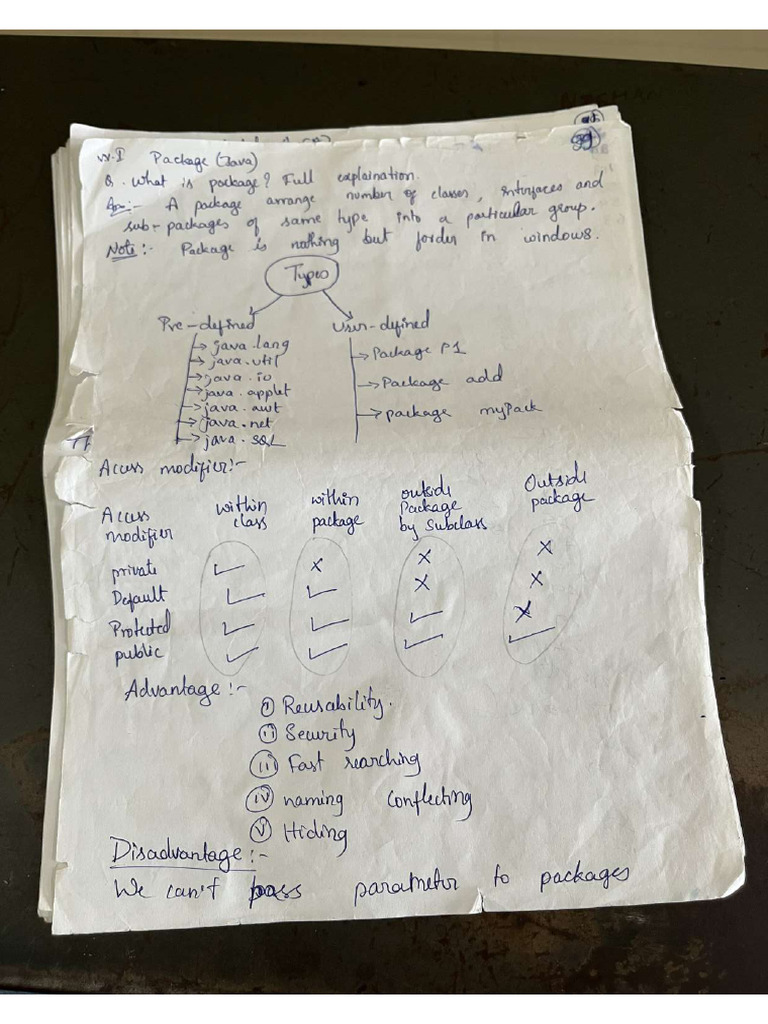 39
VV.I Package (Java)
Q. What is package? Full explaination.
Ans:- A package arrange number of classes, interfaces and
sub-packages of same type into a particular group.
Note:- Package is nothing but forder in windows.
Types
Pre-defined User-defined
java.lang
java.util
java.io
java.applet
java.awt
java.net
java.SQL
Package P1
Package add
package myPack
Access modifier:-
Access modifier within class within package outside Package by Subclass Outside package
private ✓ × × ×
Default ✓ ✓ × ×
Protected ✓ ✓ ✓ ×
public ✓ ✓ ✓ ✓
Advantage:-
(i) Reusability.
(ii) Security
(iii) Fast searching
(iv) naming conflecting
(v) Hiding
Disadvantage:-
We can't pass parameter to packages